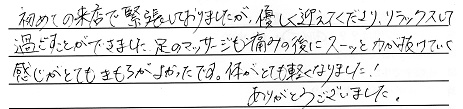 初めての来店で緊張しておりましたが、優しく迎えてくださり、リラックスして
過ごすことができました 足のマッサージも痛みの後にスーッと力が抜けていく
感じがとてもきもちがよかったです。体がとても軽くなりました!
ありがとうございました。